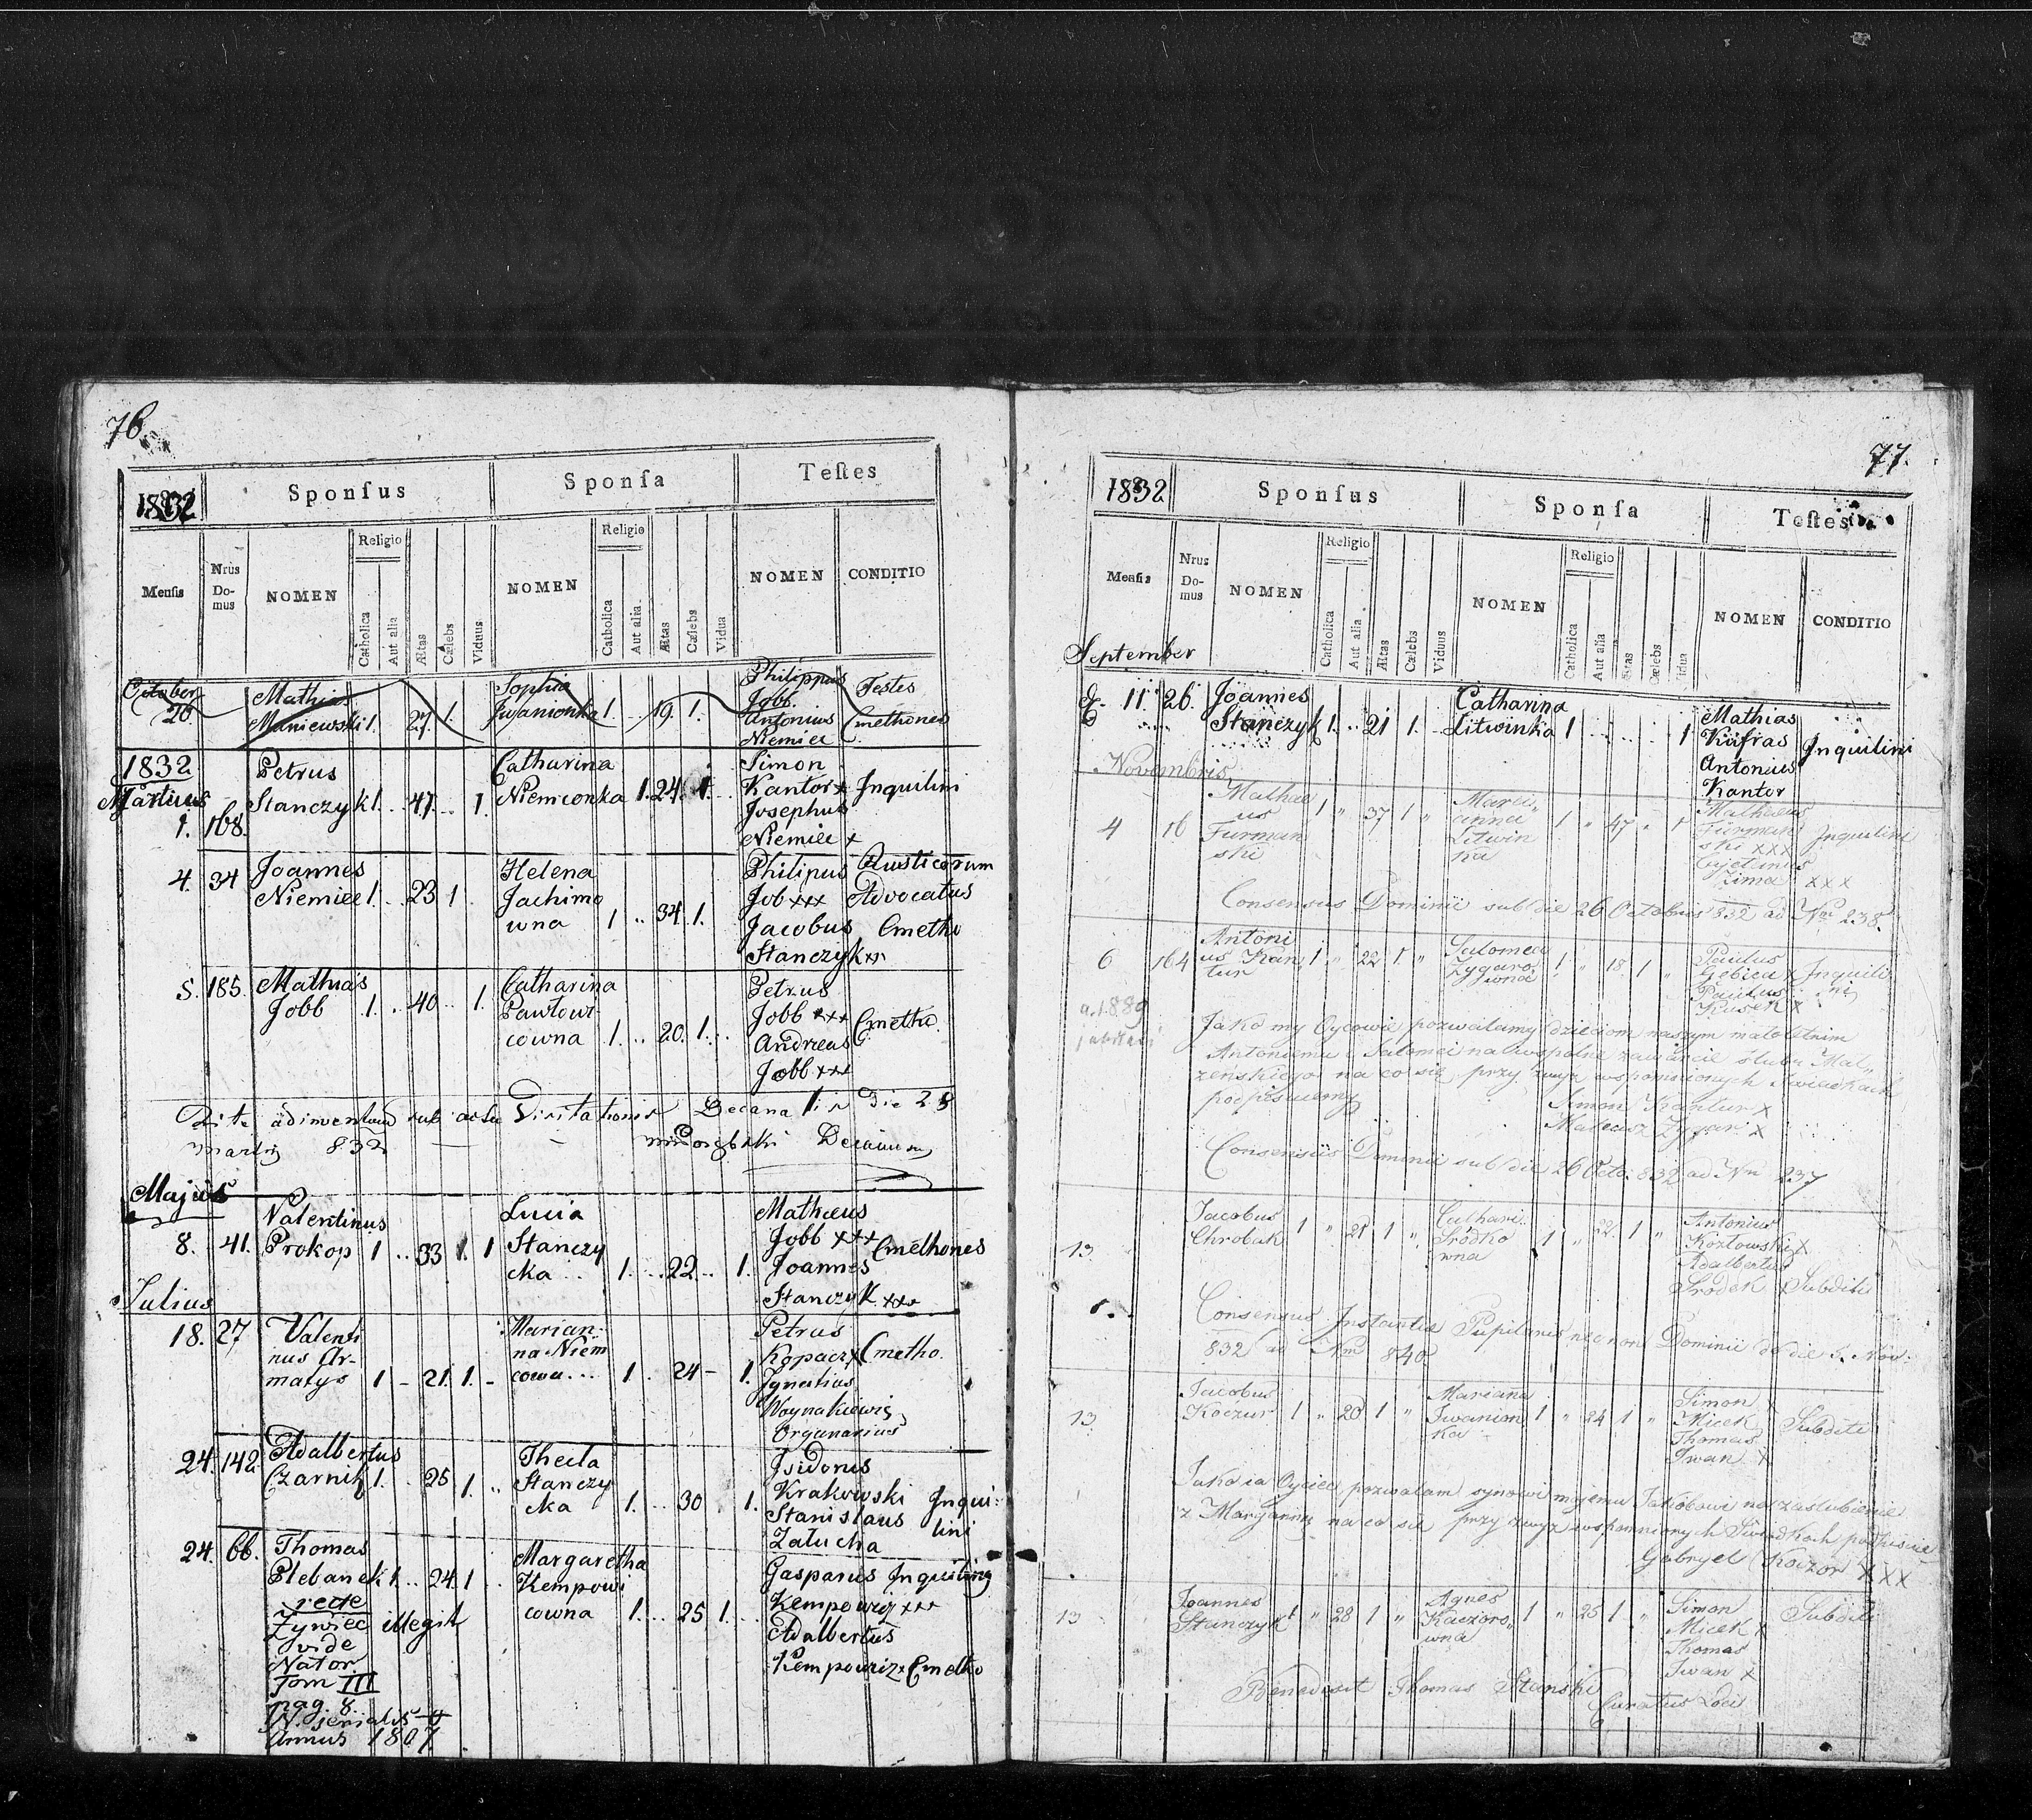 76
1832
Sponſus
Sponſa
Teſtes
Menſis
Nrus Domus
NOMEN
Religio
Catholica
Aut alia
Ætas
Cælebs
Viduus
NOMEN
Religio
Catholica
Aut alia
Ætas
Cælebs
Vidua
NOMEN
CONDITIO
October
20
Mathias
Maniewski 1. 27. 1.
Sophia
Iwanionka 1. .. 19. 1.
Philippus
Jobb.
Antonius
Niemiec
Testes
Cmethones
1832
Martius
1. 168.
Petrus
Stanczyk 1. .. 47. .. 1.
Catharina
Niemconka 1. 24. 1.
Simon
Kantor x
Josephus
Niemiec x
Inquilini
4. 34
Joannes
Niemiec 1. .. 23 1.
Helena
Jachimo
wna 1 .. 34. 1.
Philipus
Job xxx
Jacobus
Stanczyk xx
Rusticorum
Advocatus
Cmetho
5. 185.
Mathias
Jobb 1. .. 40. .. 1.
Catharina
Pawłowi
cowna 1. .. 20. 1. ..
Petrus
Jobb xxx
Andreas
Jobb xxx
Cmetho.
Rite adinventum sub actu Visitationis Decanalis Die 28
martij 832
Decanus
Majus
8. 41.
Valentinus
Prokop 1 .. 33 1. 1
Lucia
Stanczy
cka .. 1. .. 22 .. 1.
Mathæus
Jobb xxx
Joannes
Stanczyk xxx
Cmethones
Julius
18. 27
Valenti
nus Ar-
matys 1 - 21. 1. -
Marian-
na Niem
cowa ... 1 . 24 - 1.
Petrus
Kopacz x
Ignatius
Woynakiewicz
Organarius
Cmetho.
24. 142
Adalbertus
Czarnik 1. .. 25 1. ..
Thecla
Stanczy
cka 1. .. 30 1.
Isidorus
Krakowski
Stanislaus
Zatucha
Inqui-
lini
24. 66.
Thomas
Plebanek 1. .. 24. 1 ..
recte
Żywiec illegit
vide
Nator
Tom III
pag. 8.
N. serialis
Annus 1807.
Margaretha
Kempowi
cowna 1. .. 25 1. ..
Gasparus
Kempowicz xxx
Adalbertus
Kempowiz x
Inquilinus
Cmetho
77.
1832
Sponſus
Sponſa
Teſtes
Menſis
Nrus Domus
NOMEN
Religio
Catholica
Aut alia
Ætas
Cælebs
Viduus
NOMEN
Religio
Catholica
Aut alia
Ætas
Cælebs
Vidua
NOMEN
CONDITIO
September
d. 11. 26.
Joannes
Stanczyk 1. .. 21 1.
Catharina
Litwinka 1 .. .. 1
Mathias
Kufras
Antonius
Kantor
Inquilini
Novembris
4 16
Mathae
us
Furman
ski 1 " 37 1 "
Mari
anna
Litwin
ka 1 " 47 " 1
Mathaeus
Furman
ski xxx
Cajetanus
Zima xxx
Inquilini
Consensus Dominii sub die 26 Octobris 832 ad Nrm 238.
6 164
Antoni
us Kan
tur 1 " 22 1 "
Salomea
Zygaro
wna 1 " 18 1 "
Paulus
Gębica x
Paulus
Kusek x
Inquili
ni
a. 1889
jubilati
Jako my Oycowie pozwalamy dzieciom naszym małoletnim
Antoniemu i Salomei na wspolne zawarcie ślubu Mał„
żenskiego na co się przy zwyz wspomnionych Świadkach
podpisuiemy
Simon Kantur x
Mateusz Zygar x
Consensus Dominii sub die 26 Octo. 832 ad Nrm 237
13
Jacobus
Chrobak 1 " 21 1 "
Cathari
Srodko
wna 1 " 22 1 "
Antonius
Kozłowski x
Adalbertus
Srodek
Subditi
Consensus Instantia Pupilaris nec non Dominii de die 5. Nov.
832 ad Nrm 840
13
Jacobus
Koczur 1 " 20 1 "
Mariana
Iwanion
ka 1 " 24 1 "
Simon x
Micek
Thomas
Iwan x
Subditi
Jako ia Oyciec pozwalam synowi mojemu Jakobowi na zaslubienie
z Maryanną na co się przy zwyz wspomnionych Świadkach podpisuie
Gabryel Koczor xxx
13
Joannes
Stanczyk 1 " 28 1 "
Agnes
Kaczoro„
wna 1 " 25 1 "
Simon
Micek x
Thomas
Iwan x
Subditi
Benedixit Thomas Stanski
Curatus Loci